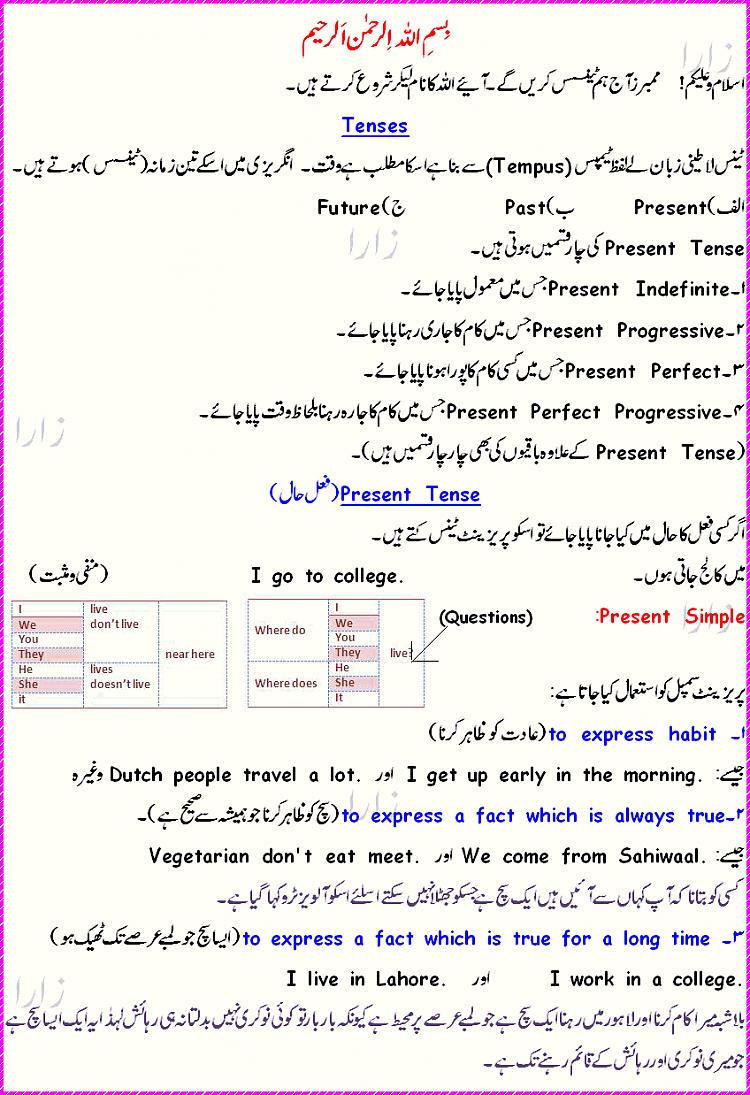 بِسمِ اللہ اِلرحمٰن اَلرحیم
زارا
اسلام و علیکم! ممبرز آج ہم ٹینسس کریں گے۔ آیئے اللہ کا نام لیکر شروع کرتے ہیں۔
Tenses
ٹینس لاطینی زبان لے لفظ ٹیمپس (Tempus) سے بنا ہے اسکا مطلب ہے وقت۔ انگریزی میں اسکے تین زمانہ (ٹینسس) ہوتے ہیں۔
الف)Present ب)Past ج)Future
زارا
Present Tense کی چار قسمیں ہوتی ہیں۔
۱۔Present Indefinite جس میں معمول پایا جائے۔
۲۔Present Progressive جس میں کام کا جاری رہنا پایا جائے۔
۳۔Present Perfect جس میں کسی کام کا پورا ہونا پایا جائے۔
۴۔Present Perfect Progressive جس میں کام کا جارہ رہنا بلحاظ وقت پایا جائے۔
زارا
(Present Tense کے علاوہ باقیوں کی بھی چار چار قسمیں ہیں)۔
Present Tense (فعل حال)
اگر کسی فعل کا حال میں کیا جانا پایا جائے تو اسکو پریزینٹ ٹینس کتے ہیں۔
میں کالج جاتی ہوں۔ I go to college. (منفی و مثبت)
Present Simple: (Questions)
زارا
I We You They live don't live
He She it lives doesn't live
near here
Where do I We You They
Where does He She It
live?
پریزینٹ سمپل کو استعمال کیا جاتا ہے:
۱۔ to express habit (عادت کو ظاہر کرنا)
جیسے: I get up early in the morning. اور Dutch people travel a lot. وغیرہ
زارا
۲۔to express a fact which is always true (سچ کو ظاہر کرنا جو ہمیشہ سے صحیح ہے)۔
جیسے: We come from Sahiwaal. اور Vegetarian don't eat meet.
کسی کو بتانا کہ آپ کہاں سے آئیں ہیں ایک سچ ہے جسکو جھٹلا نہیں سکتے اسلئے اسکو آلویز ٹرو کہا گیا ہے۔
۳۔ to express a fact which is true for a long time (ایسا سچ جو لمبے عرصے تک ٹھیک ہو)
I work in a college. اور I live in Lahore.
زارا
بلا شبہ میرا کام کرنا اور لاہور میں رہنا ایک سچ ہے جو لمبے عرصے پر محیط ہے کیونکہ بار بار تو کوئی نوکری نہیں بدلتا نہ ہی رہائش لہذٰا یہ ایک ایسا سچ ہے
جو میری نوکری اور رہائش کے قائم رہنے تک ہے۔